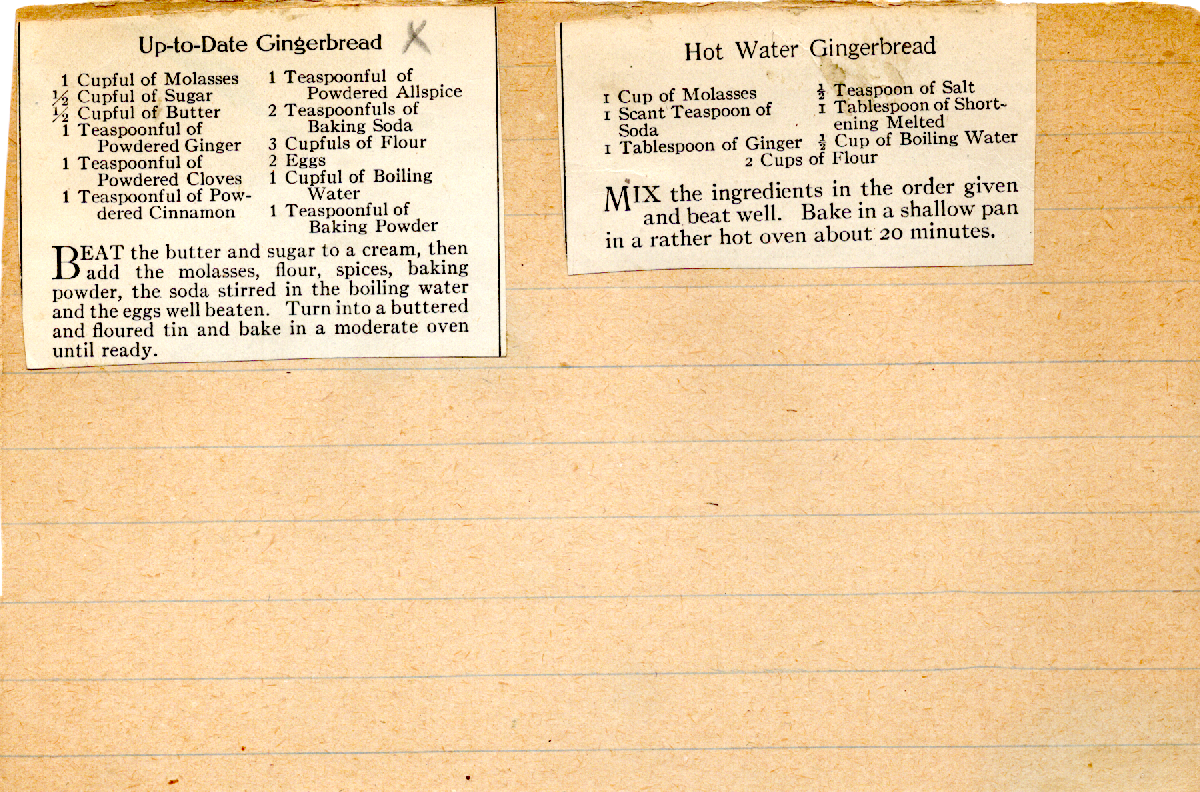 Up-to-Date Gingerbread X
1 Cupful of Molasses
½ Cupful of Sugar
½ Cupful of Butter
1 Teaspoonful of
Powdered Ginger
1 Teaspoonful of
Powdered Cloves
1 Teaspoonful of Pow-
dered Cinnamon
1 Teaspoonful of
Powdered Allspice
2 Teaspoonfuls of
Baking Soda
3 Cupfuls of Flour
2 Eggs
1 Cupful of Boiling
Water
1 Teaspoonful of
Baking Powder
BEAT the butter and sugar to a cream, then
add the molasses, flour, spices, baking
powder, the soda stirred in the boiling water
and the eggs well beaten. Turn into a buttered
and floured tin and bake in a moderate oven
until ready.
Hot Water Gingerbread
1 Cup of Molasses
1 Scant Teaspoon of
Soda
1 Tablespoon of Ginger
½ Teaspoon of Salt
1 Tablespoon of Short-
ening Melted
½ Cup of Boiling Water
2 Cups of Flour
MIX the ingredients in the order given
and beat well. Bake in a shallow pan
in a rather hot oven about 20 minutes.